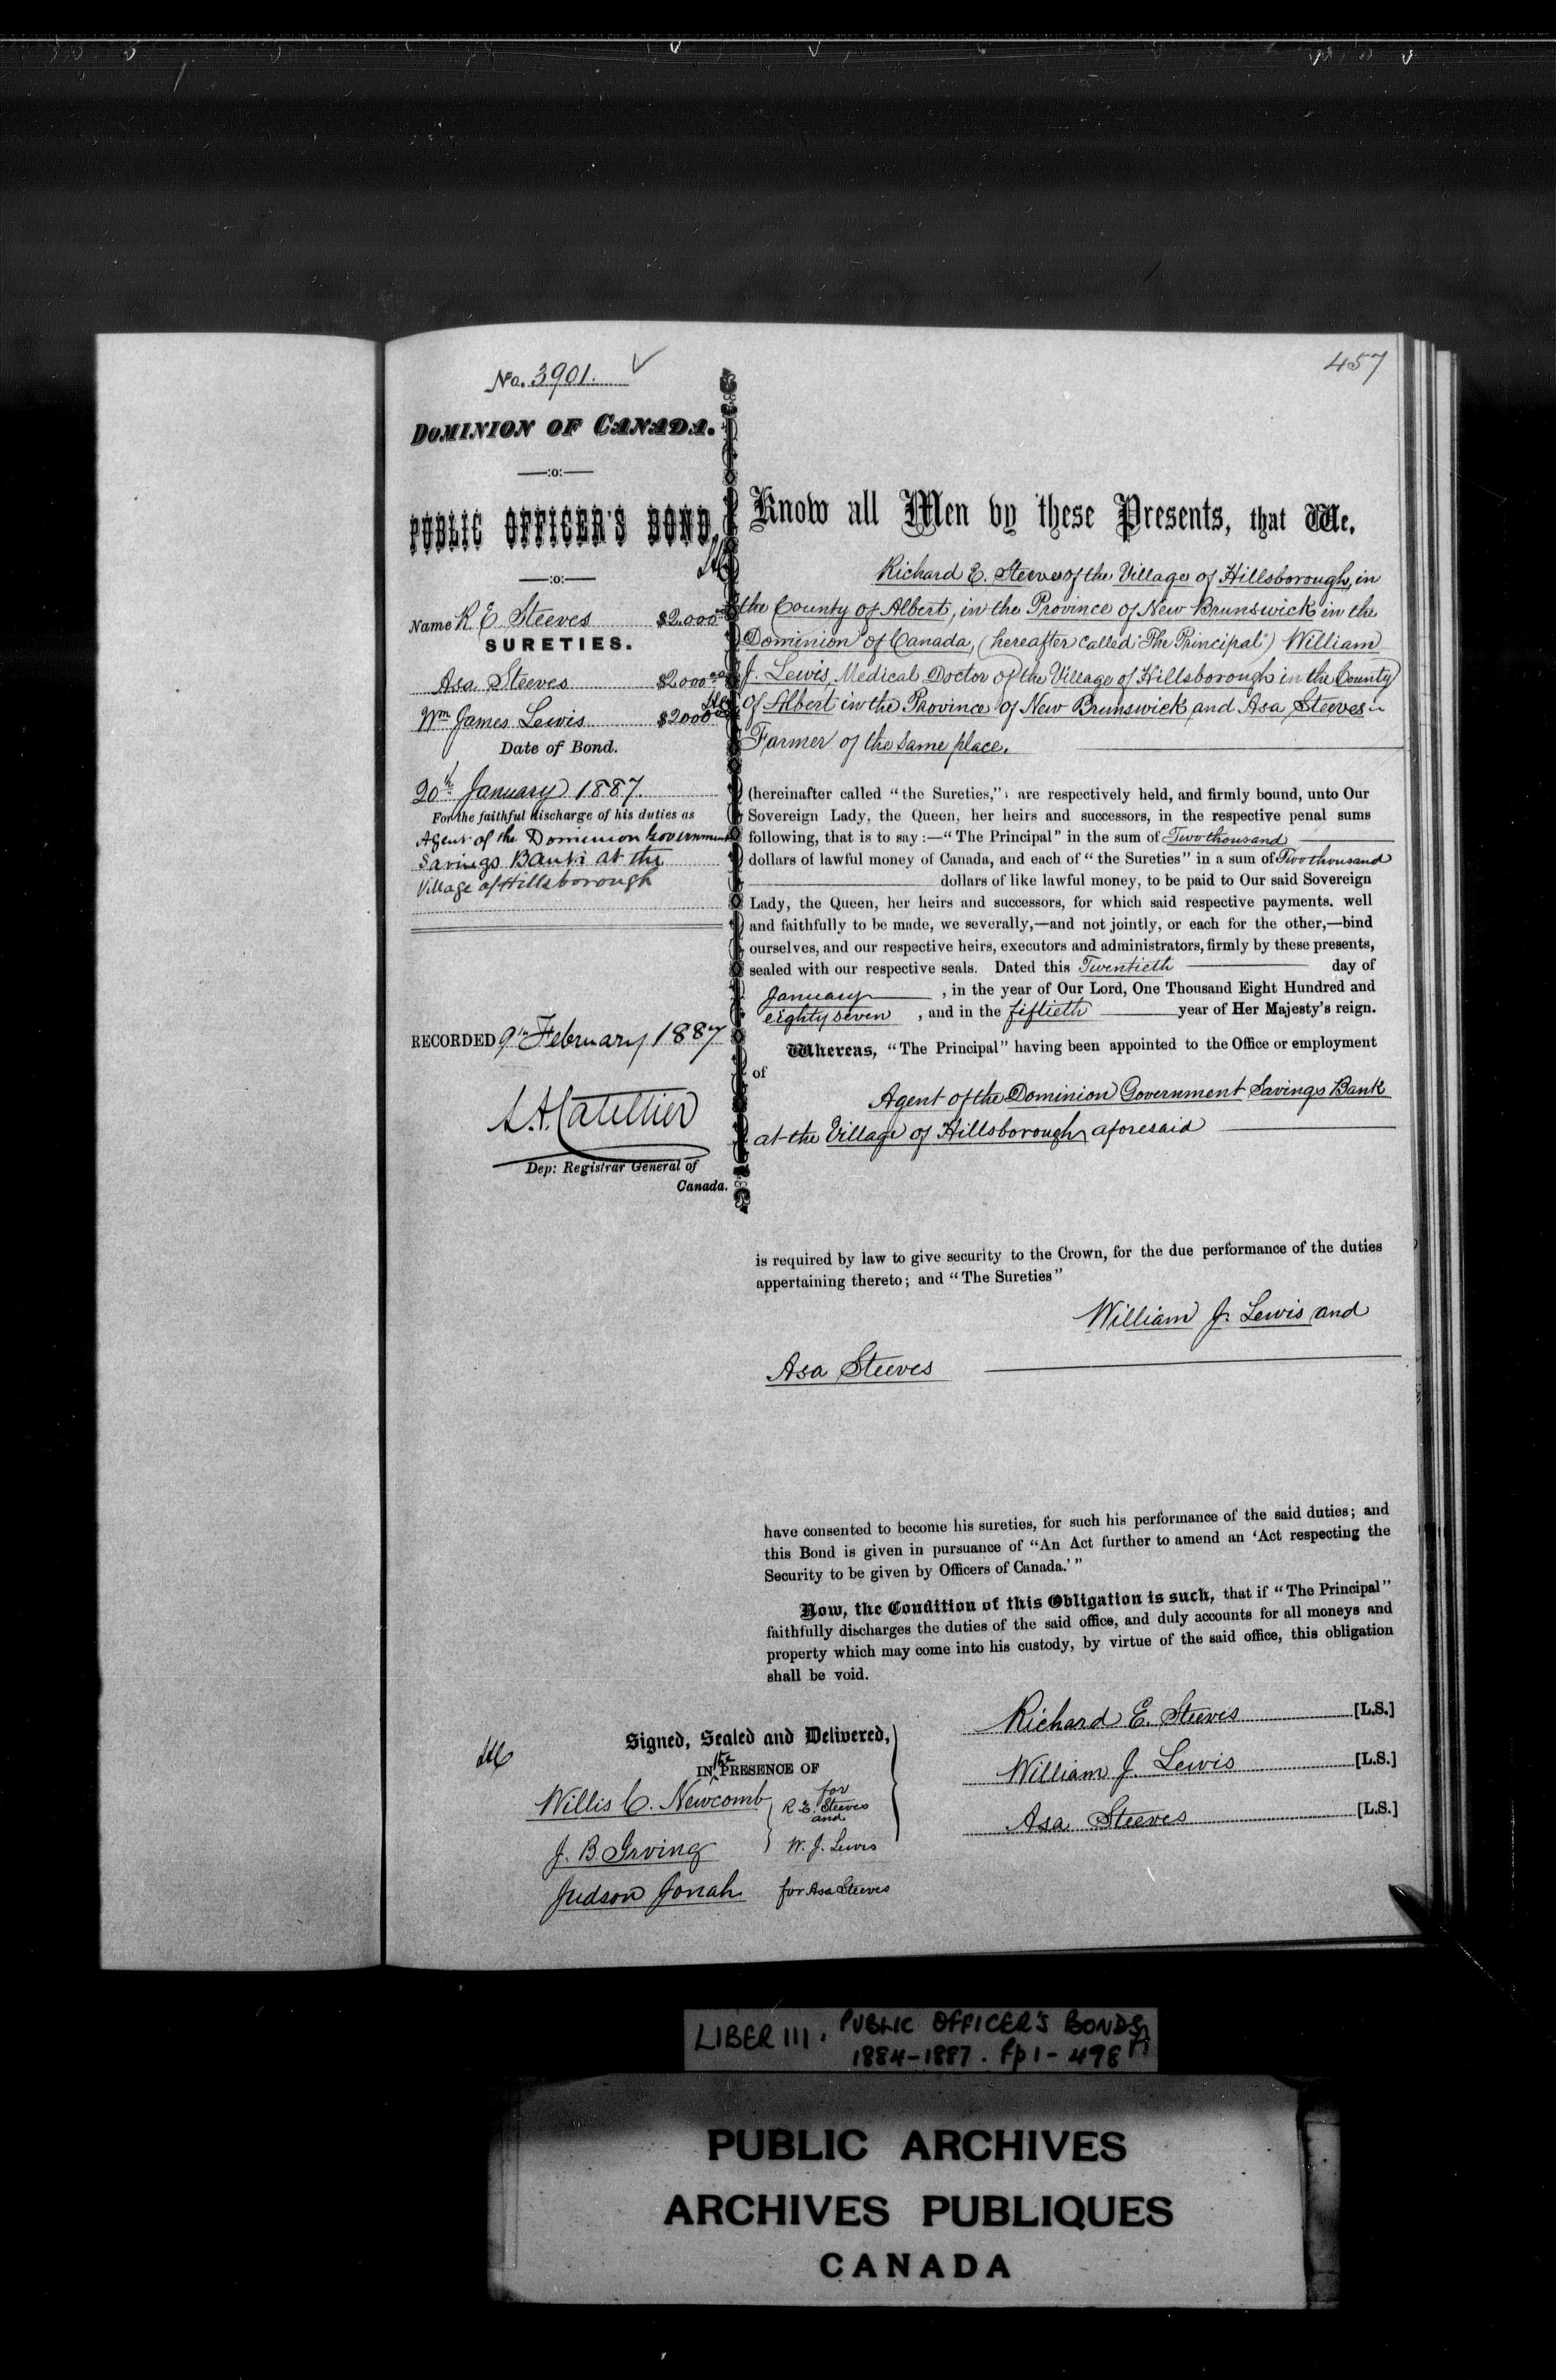 457
No. 3901.
DOMINION OF CANADA.
—:o:—
PUBLIC OFFICER'S BOND,
—:o:—
Name R E Steeves $2.000 00
SURETIES.
Asa Steeves $2000 00
Wm James Lewis $2000 00
Date of Bond.
20th January 1887.
For the faithful discharge of his duties as
Agent of the Dominion Government
Savings Bank at the
Village of Hillsborough
RECORDED 9th February 1887
L.A. Catellier
Dep: Registrar General of
Canada.
Know all Men by these Presents, that We,
Richard E. Steeves of the Village of Hillsborough, in
the County of Albert, in the Province of New Brunswick in the
Dominion of Canada, (hereafter called "The Principal") William
J. Lewis, Medical Doctor of the Village of Hillsborough in the County
of Albert in the Province of New Brunswick and Asa Steeves
Farmer of the same place.
(hereinafter called "the Sureties,") are respectively held, and firmly bound, unto Our
Sovereign Lady, the Queen, her heirs and successors, in the respective penal sums
following, that is to say:—"The Principal" in the sum of Two thousand
dollars of lawful money of Canada, and each of "the Sureties" in a sum of Two thousand
dollars of like lawful money, to be paid to Our said Sovereign
Lady, the Queen, her heirs and successors, for which said respective payments. well
and faithfully to be made, we severally,—and not jointly, or each for the other,—bind
ourselves, and our respective heirs, executors and administrators, firmly by these presents,
sealed with our respective seals. Dated this Twentieth day of
January, in the year of Our Lord, One Thousand Eight Hundred and
eighty seven, and in the fiftieth year of Her Majesty's reign.
Whereas, "The Principal" having been appointed to the Office or employment
of
Agent of the Dominion Government Savings Bank
at the Village of Hillsborough aforesaid
is required by law to give security to the Crown, for the due performance of the duties
appertaining thereto; and "The Sureties"
William J. Lewis and
Asa Steeves
have consented to become his sureties, for such his performance of the said duties; and
this Bond is given in pursuance of "An Act further to amend an 'Act respecting the
Security to be given by Officers of Canada.'"
Now, the Condition of this Obligation is such, that if "The Principal"
faithfully discharges the duties of the said office, and duly accounts for all moneys and
property which may come into his custody, by virtue of the said office, this obligation
shall be void.
Signed, Sealed and Delivered,
IN the PRESENCE OF
Willis C. Newcomb for R E. Steeves
and
J. B. Irving W. J. Lewis
Judson Jonah for Asa Steeves
Richard E. Steeves [L.S.]
William J. Lewis [L.S.]
Asa Steeves [L.S.]
LIBER III. PUBLIC OFFICER'S BONDS
1884-1887. fp 1-498
PUBLIC ARCHIVES
ARCHIVES PUBLIQUES
CANADA